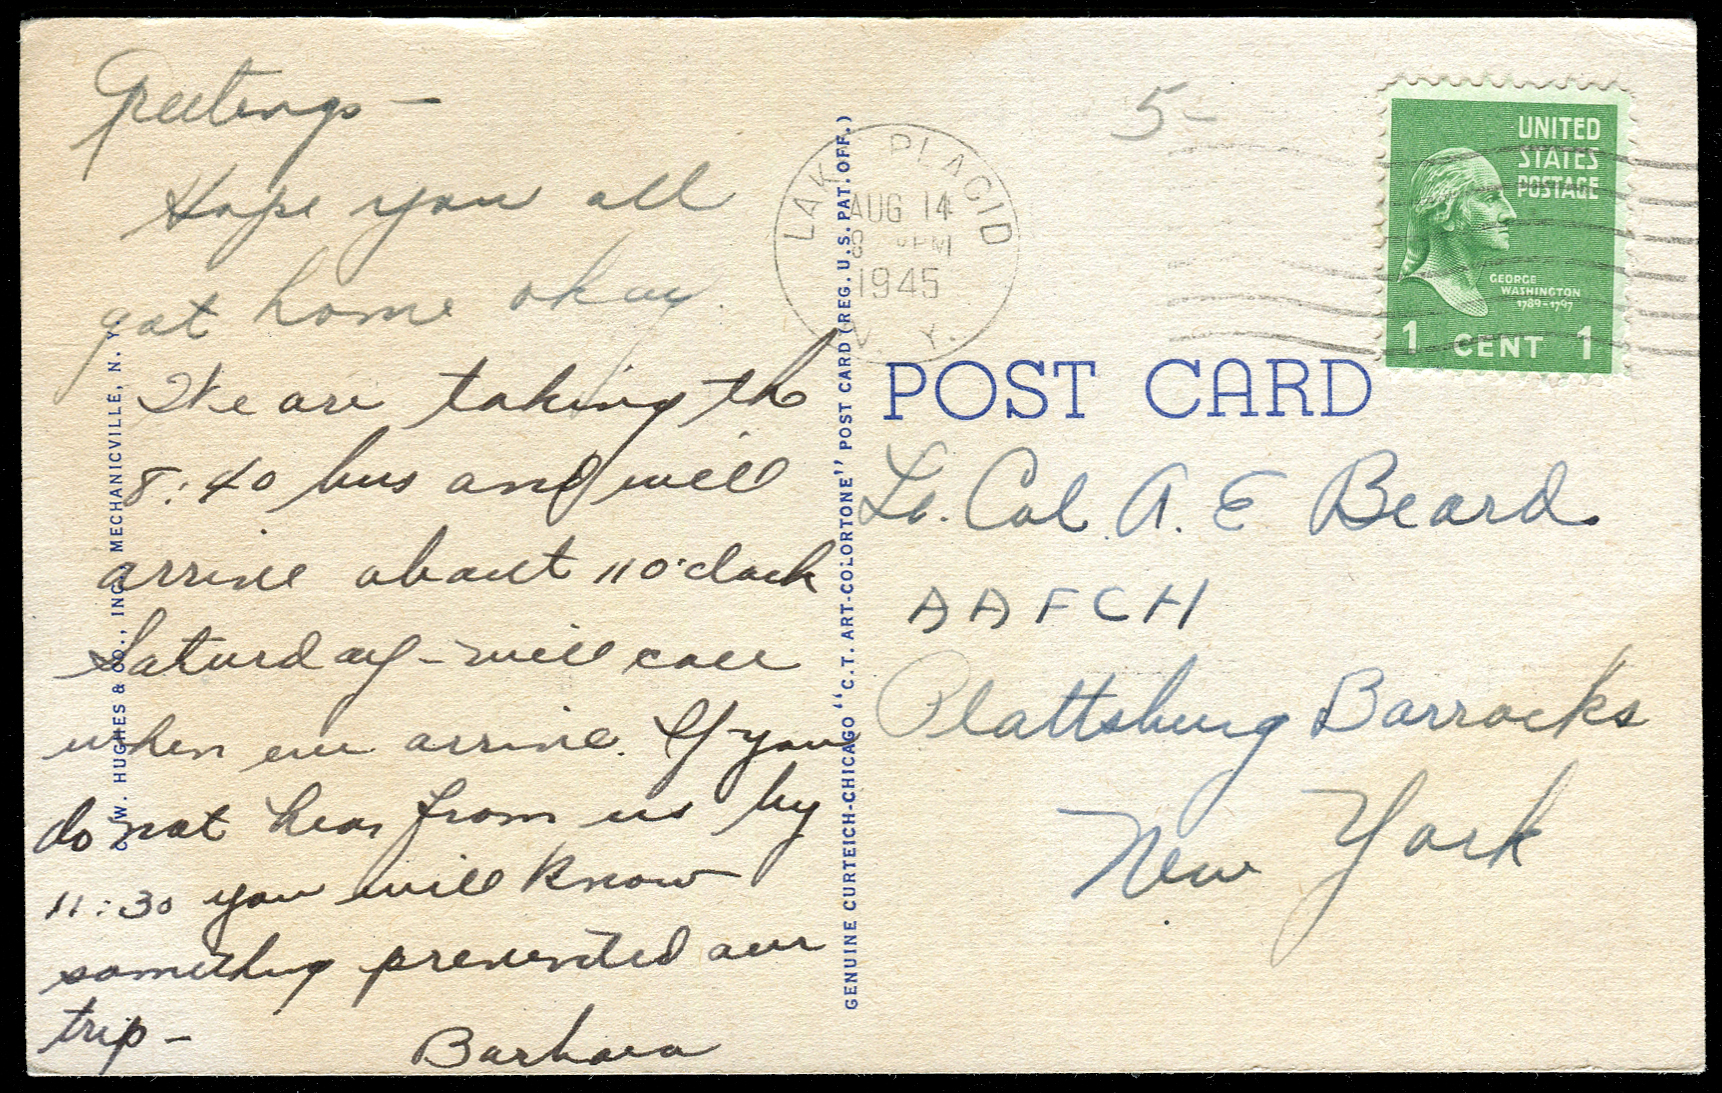 Greetings —
Hope you all
got home okay.
We are taking the
8:40 bus and will
arrive about 11 o'clock
Saturday – will call
when we arrive. If you
do not hear from us by
11:30 you will know
something prevented our
trip –
Barbara
C. W. HUGHES & CO., INC., MECHANICVILLE, N. Y.
GENUINE CURTEICH-CHICAGO "C.T. ART-COLORTONE" POST CARD (REG. U.S. PAT. OFF.)
LAKE PLACID
AUG 14
PM
1945
N. Y.
5-
UNITED
STATES
POSTAGE
GEORGE
WASHINGTON
1789-1797
1 CENT 1
POST CARD
Lt. Col. A. E Beard
AAFCH
Plattsburg Barracks
New York